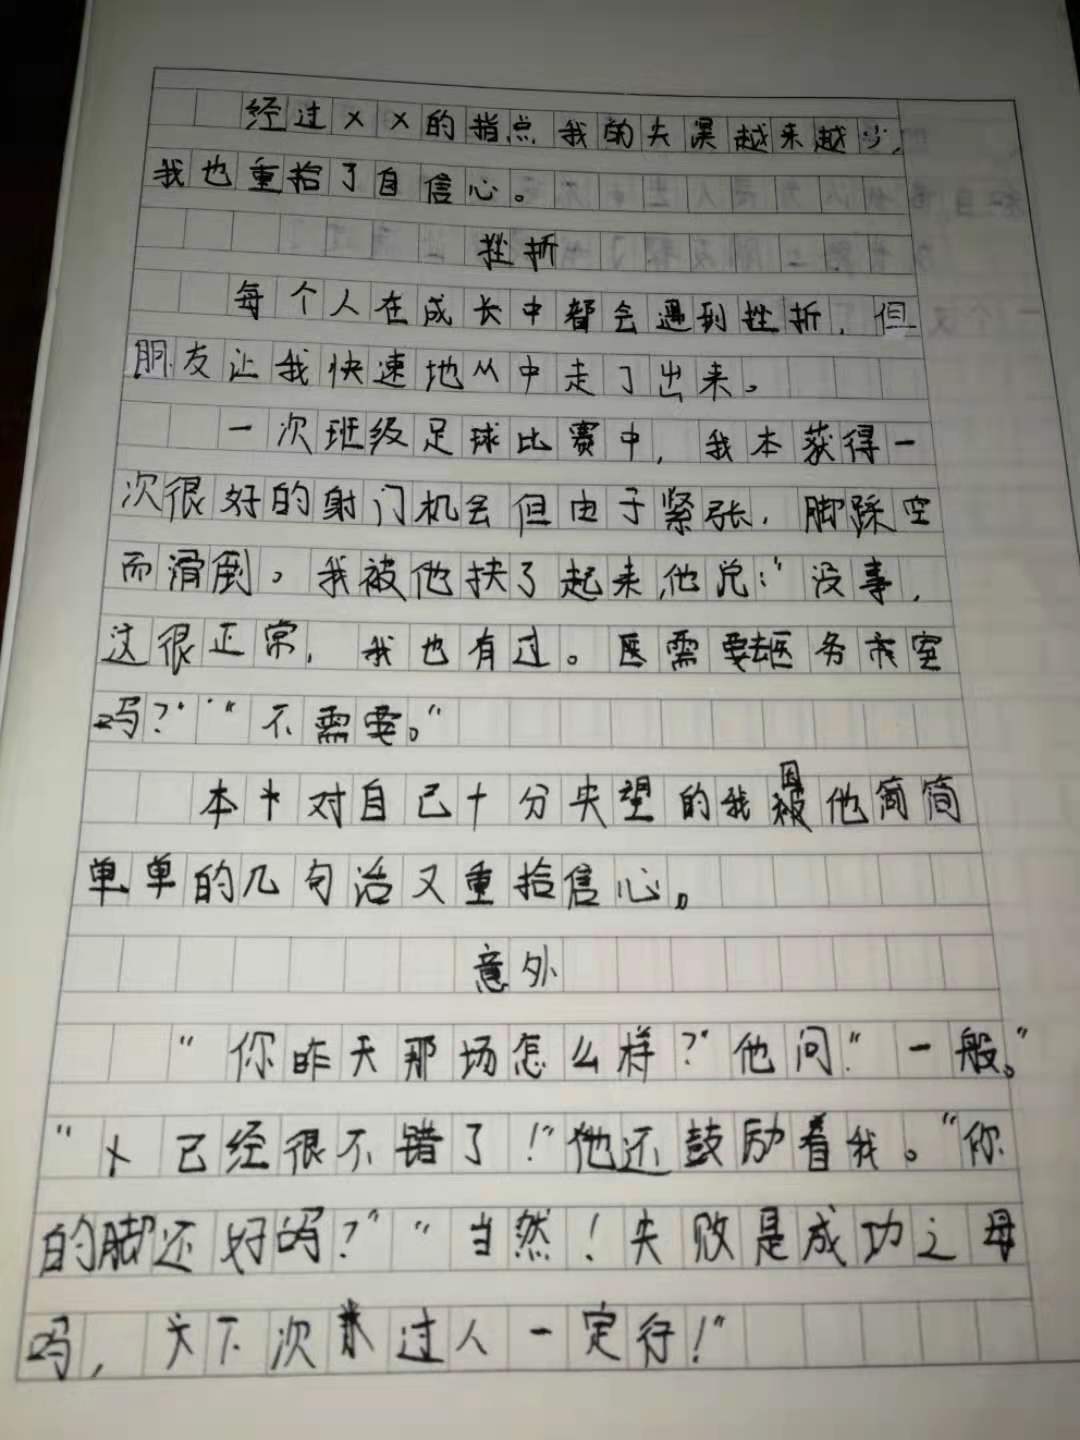 经过××的指点我的失误越来越少,
我也重拾了自信心。
挫折
每个人在成长中都会遇到挫折,但
朋友让我快速地从中走了出来。
一次班级足球比赛中,我本获得一
次很好的射门机会但由于紧张,脚踩空
而滑倒。我被他扶了起来,他说:"没事,
这很正常,我也有过。需要去医务室
吗?""不需要。"
本对自己十分失望的我因他简简
单单的几句话又重拾信心。
意外
"你昨天那场怎么样?"他问"一般。"
"已经很不错了!"他还鼓励着我。"你
的脚还好吗?""当然!失败是成功之母
吗,下次过人一定行!"